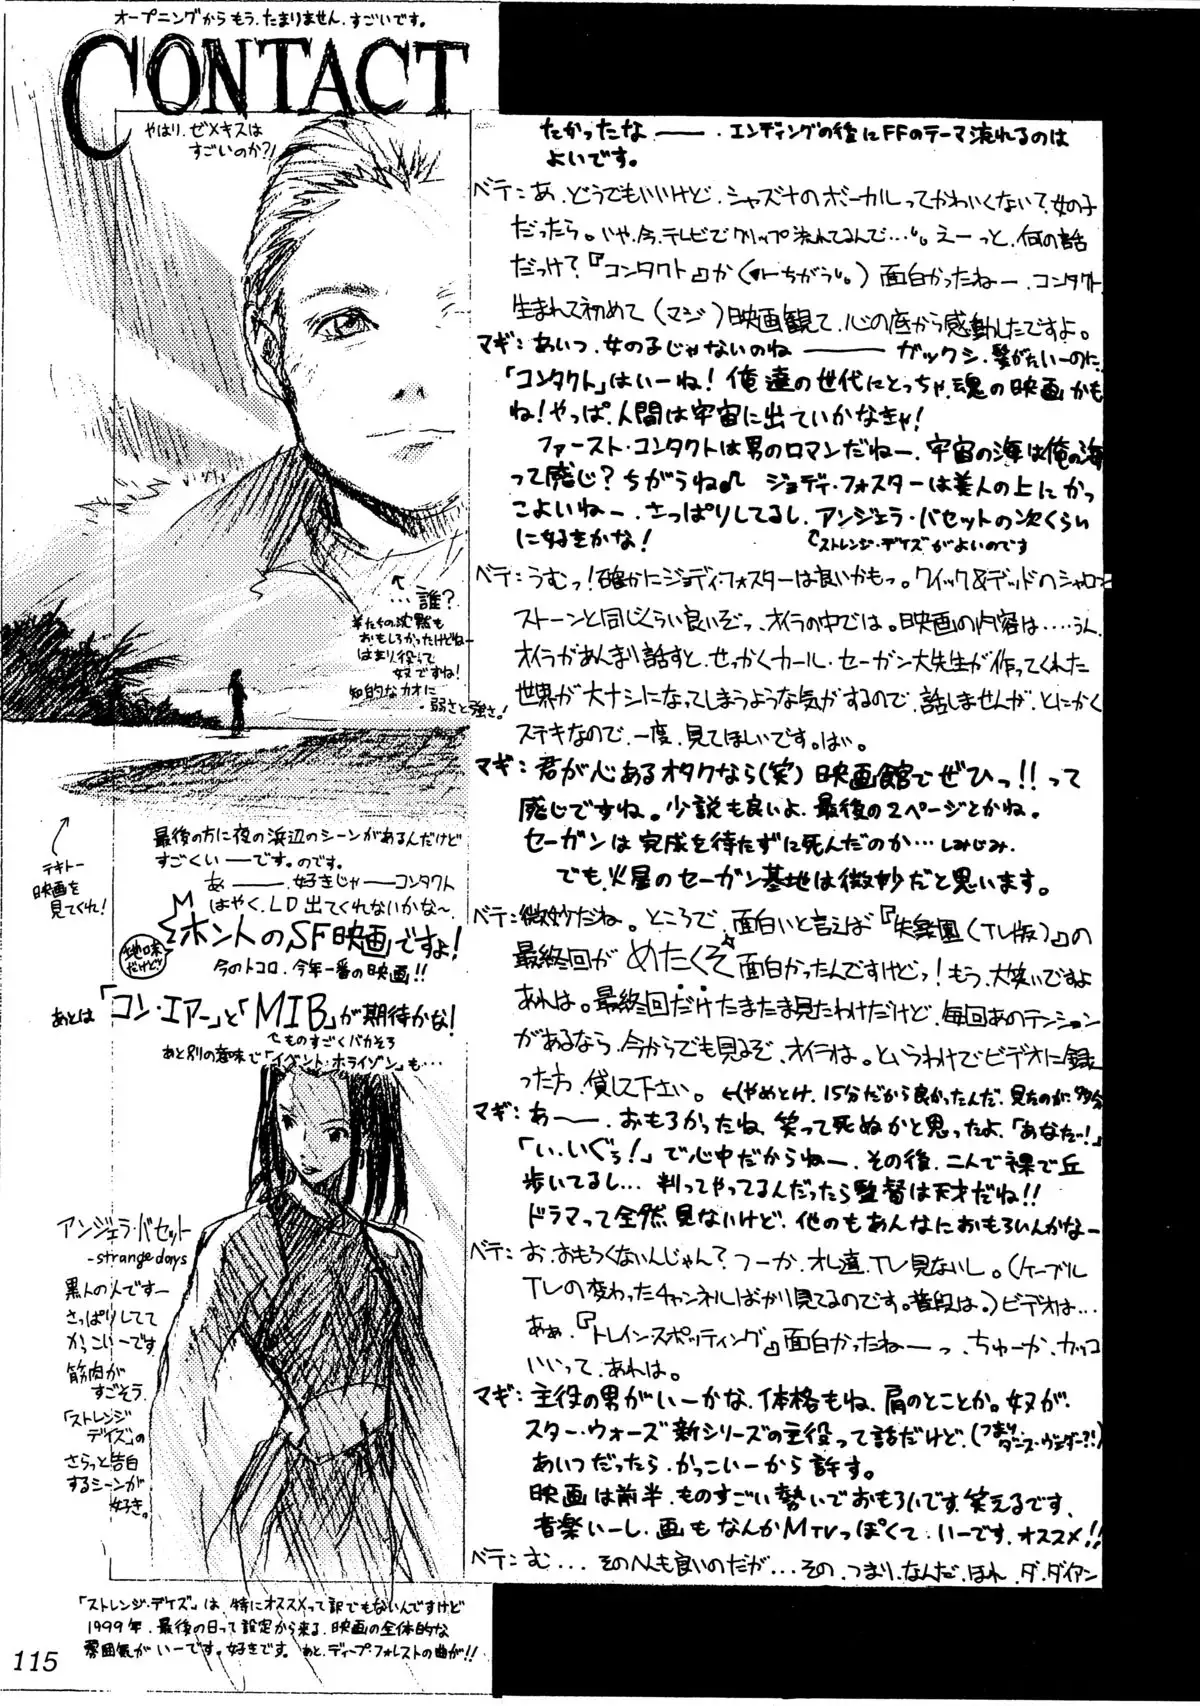 オープニングからもう、たまりません、すごいです。
CONTACT
やはり、ゼメキスは
すごいのか?!
←
…誰?
羊たちの沈黙も
おもしろかったけどねー
はまり役って
奴ですね!
知的なカオに
弱さと強さ!
テキトー
映画を
見てくれ!
最後の方に夜の浜辺のシーンがあるんだけど
すごくいーです。のです。
あー、好きじゃーコンタクト
はやく、LD出てくれないかな〜、
ホントのSF映画ですよ!
地味だけど!
今のトコロ、今年一番の映画!!
あとは「コン・エアー」と「MIB」が期待かな!
ものすごくバカそう
あと別の意味で「イベント・ホライゾン」も…
アンジェラ・バセット
-strange days
黒人の人ですー
さっぱりしてて
かっこいーです
筋肉が
すごそう、
「ストレンジ
デイズ」の
さらっと告白
するシーンが
好き。
「ストレンジ・デイズ」は、特にオススメって訳でもないんですけど
1999年、最後の日って設定から来る、映画の全体的な
雰囲気がいーです。好きです。あと、ディープ・フォレストの曲が!!
115
たかったなー、エンディングの後にFFのテーマ流れるのは
よいです。
ベテ:あ、どうでもいいけど、シャズナのボーカルってかわいくないて?女の子
だったら。いや、今、テレビでクリップ流れてるんで…。えーっと、何の話
だっけ?『コンタクト』か(←ちがう。)面白かったねー、コンタクト
生まれて初めて(マジ)映画観て、心の底から感動したですよ。
マギ:あいつ、女の子じゃないのねー ガックシ、髪がたいーのに、
「コンタクト」はいーね!俺達の世代にとっちゃ、魂の映画かも
ね!やっぱ、人間は宇宙に出ていかなきゃ!
ファースト・コンタクトは男のロマンだねー、宇宙の海は俺の海
って感じ?ちがうね♪ ジョディ・フォスターは美人の上にかっ
こよいねー、さっぱりしてるし、アンジェラ・バセットの次くらい
に好きかな!
「ストレンジ・デイズ」がよいのです
ベテ:うむっ!確かにジョディ・フォスターは良いかもっ。クイック&デッドのシャロン
ストーンと同じくらい良いぞっ、オイラの中では。映画の内容は……うん、
オイラがあんまり話すと、せっかくカール・セーガン大先生が作ってくれた
世界が大ナシになってしまうような気がするので、話しませんが、とにかく
ステキなので、一度、見てほしいです。はい。
マギ:君が心あるオタクなら(笑)映画館でぜひっ!!って
感じですね。小説も良いよ、最後の2ページとかね。
セーガンは完成を待たずに死んだのか…しみじみ、
でも、火星のセーガン基地は微妙だと思います。
ベテ:微妙だね。ところで、面白いと言えば『失楽園(TV版)』の
最終回がめたくそ面白かったんですけどっ!もう、大笑いですよ
あれは。最終回だけたまたま見たわけだけど、毎回あのテンション
があるなら、今からでも見るぞ、オイラは。というわけでビデオに録
った方、貸して下さい。←(やめとけ、15分だから良かったんだ、見たのが、多分
マギ:あー、おもろかったね、笑って死ぬかと思ったよ、「あなた!」
「い、いぐぅ!」で心中だからねー、その後、二人で裸で丘
歩いてるし…判ってやってるんだったら監督は天才だね!!
ドラマって全然見ないけど、他のもあんなにおもろいんかなー
ベテ:お、おもろくないんじゃん?フーか、オレ達、TV見ないし。(ケーブル
TVの変わったチャンネルばかり見てるのです。普段は。)ビデオは…
あぁ、『トレインスポッティング』面白かったねーっ、ちゅーか、カッコ
いいって、あれは。
マギ:主役の男がいーかな、体格もね、肩のとことか。奴が、
スター・ウォーズ新シリーズの主役って話だけど、(つまりダース・ヴェイダー?!)
あいつだったら、かっこいーから許す。
映画は前半、ものすごい勢いでおもろいです、笑えるです、
音楽いーし、画もなんかMTVっぽくて、いーです、オススメ!!
ベテ:む…、そのへんも良いのだが…その、つまり、なんだ、ほれ、ダ、ダイアン